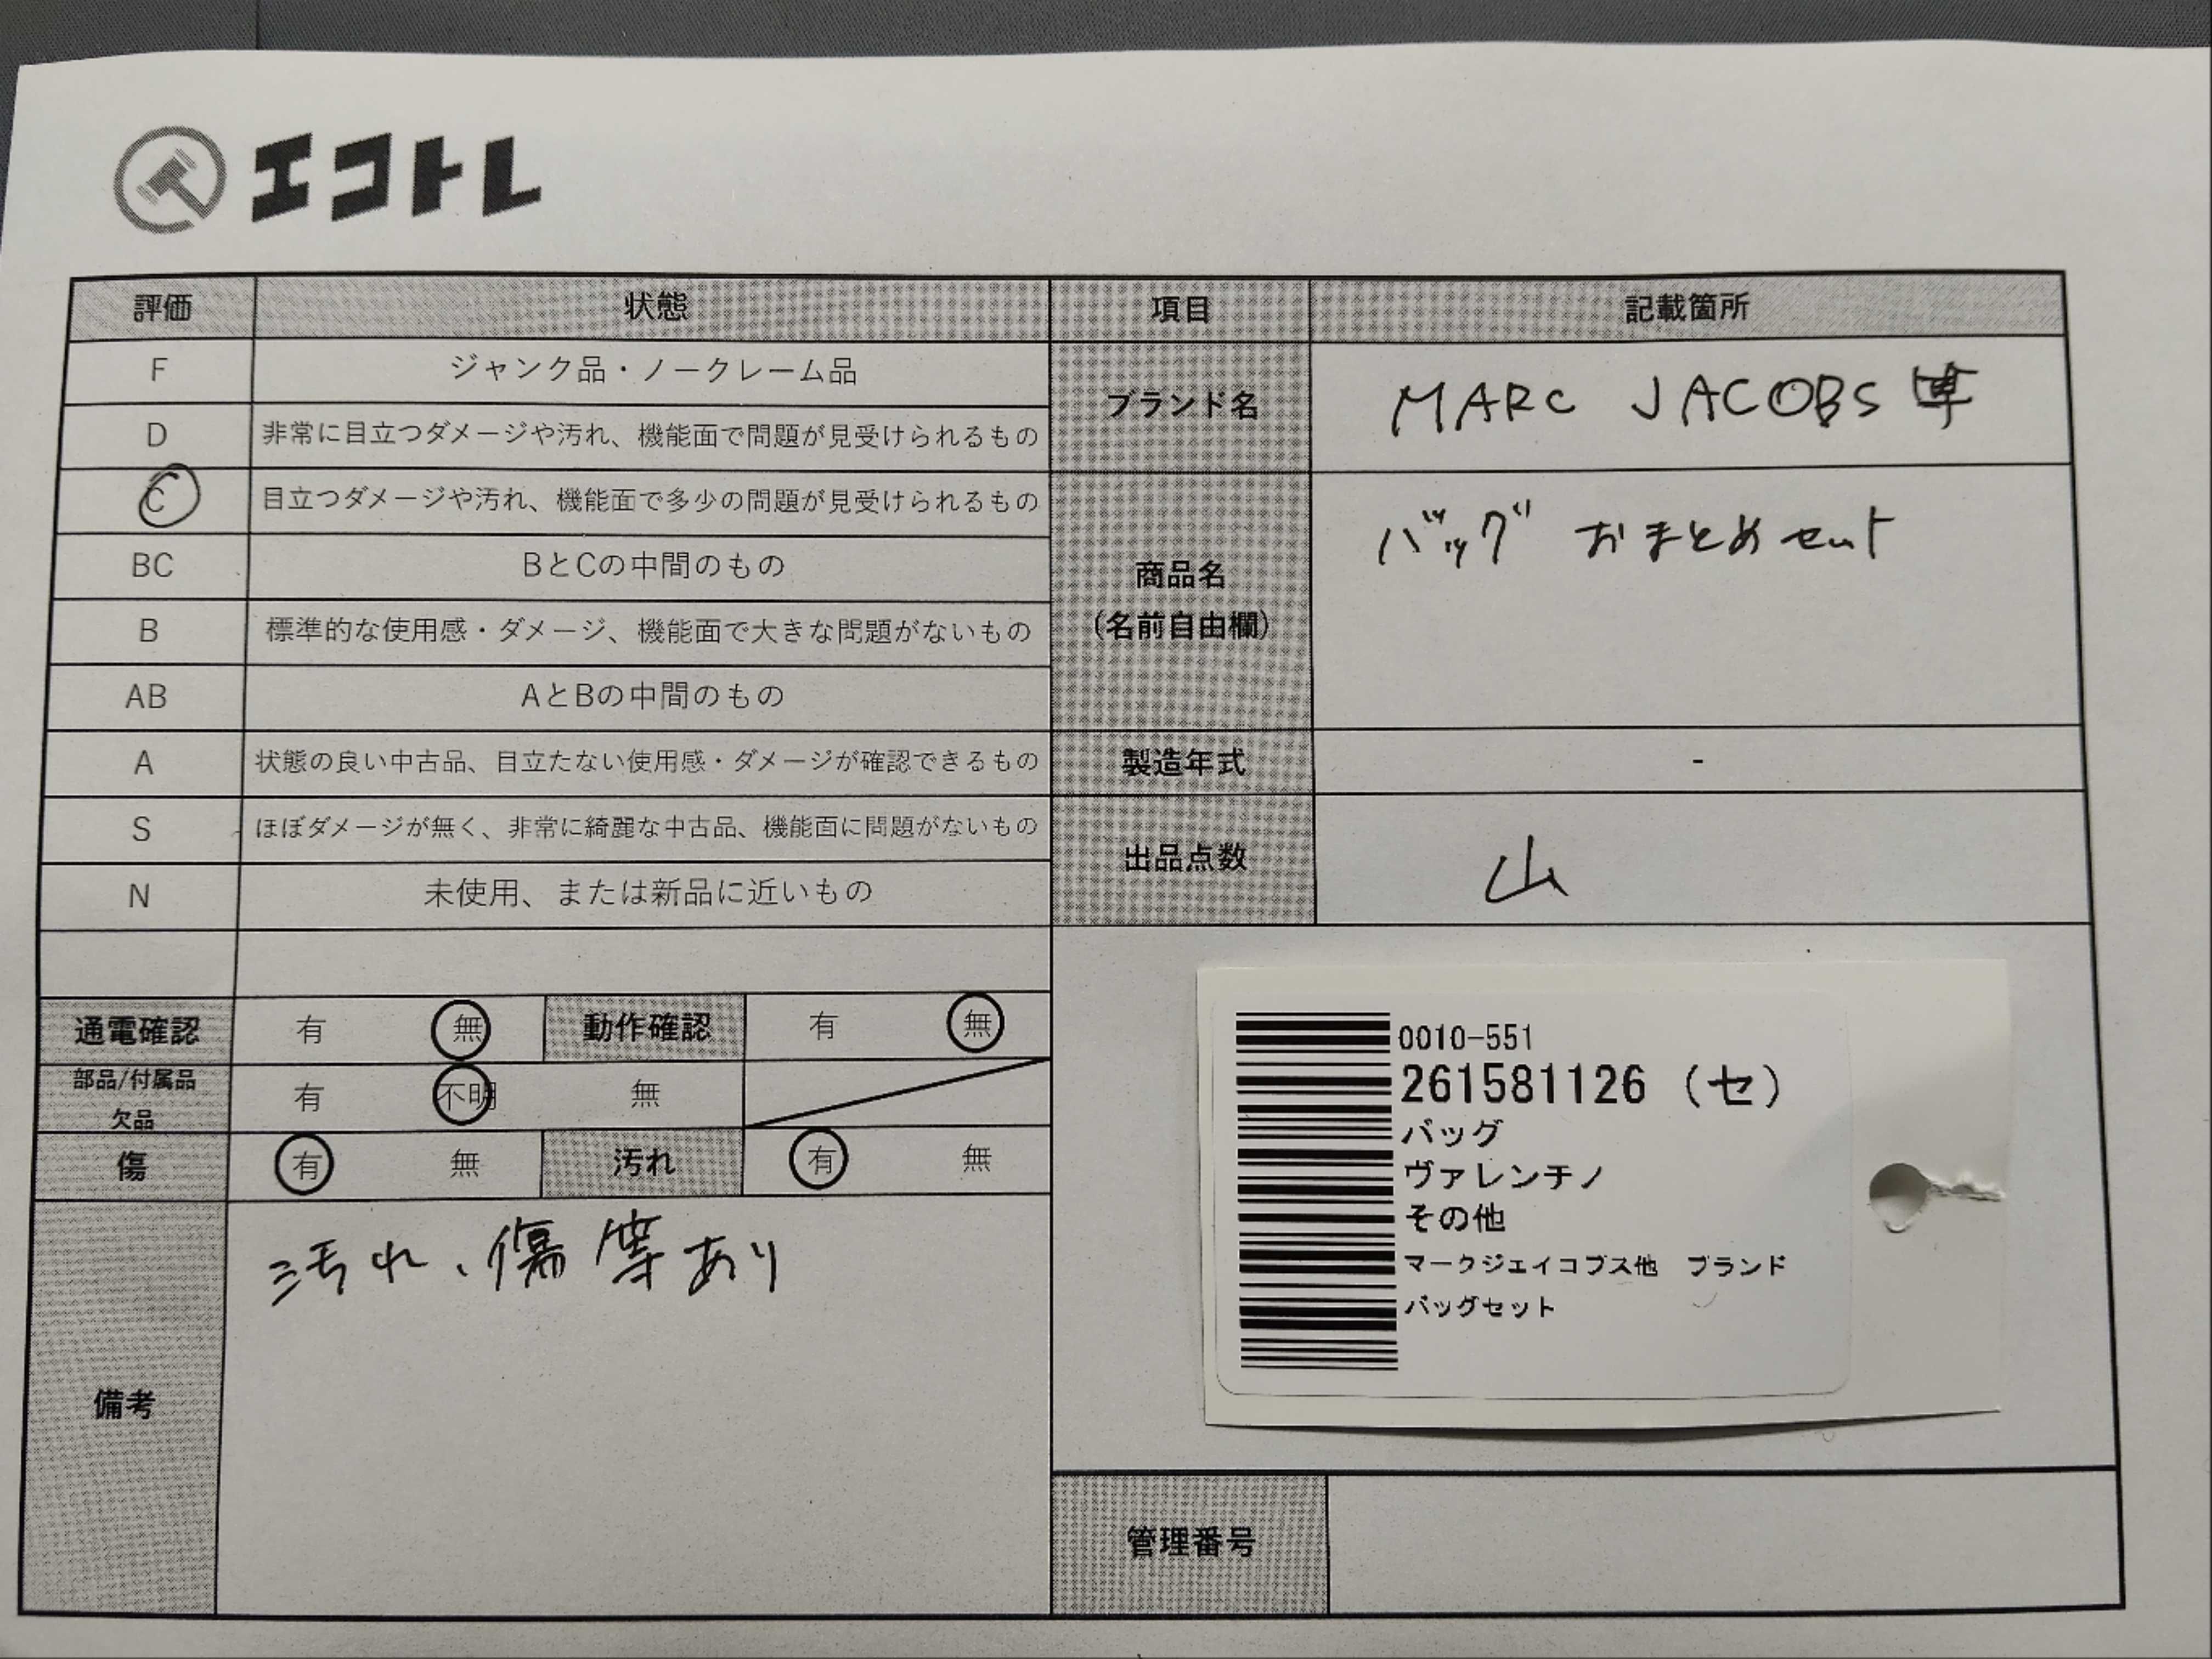 エコトレ
評価 状態 項目 記載箇所
F ジャンク品・ノークレーム品
D 非常に目立つダメージや汚れ、機能面で問題が見受けられるもの
C 目立つダメージや汚れ、機能面で多少の問題が見受けられるもの
BC BとCの中間のもの
B 標準的な使用感・ダメージ、機能面で大きな問題がないもの
AB AとBの中間のもの
A 状態の良い中古品、目立たない使用感・ダメージが確認できるもの
S ほぼダメージが無く、非常に綺麗な中古品、機能面に問題がないもの
N 未使用、または新品に近いもの
ブランド名 MARC JACOBS
商品名
(名前自由欄)
バッグ おまとめセット
製造年式 -
出品点数 山
通電確認 有 無 動作確認 有 無
部品/付属品
欠品
有 不明 無
傷 有 無 汚れ 有 無
備考
汚れ、傷等あり
0010-551
261581126 (セ)
バッグ
ヴァレンチノ
その他
マークジェイコブス他 ブランド
バッグセット
管理番号